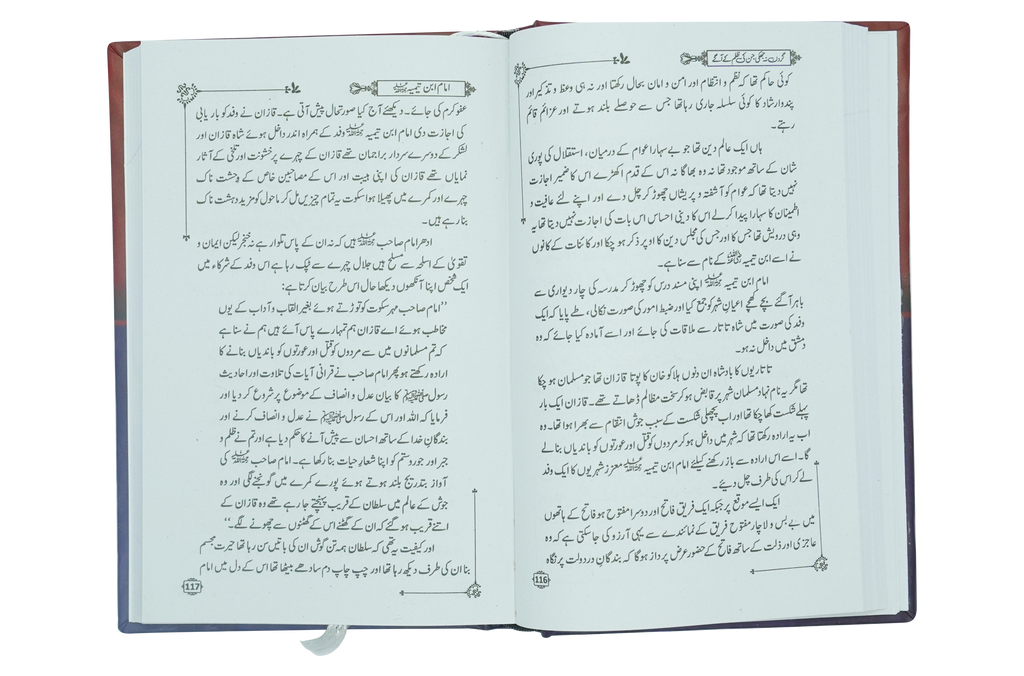 گردن نہ جھکی جن کی ظلم کے آگے
کوئی حاکم تھا کہ نظم و انتظام اور امن و امان بحال رکھتا اور نہ ہی وعظ و تذکیر اور
پند و ارشاد کا کوئی سلسلہ جاری رہا تھا جس سے حوصلے بلند ہوتے اور عزائم قائم
رہتے۔
ہاں ایک عالم دین تھا جو بے سہارا عوام کے درمیان، استقلال کی پوری
شان کے ساتھ موجود تھا نہ وہ بھاگا نہ اس کے قدم اکھڑے اس کا ضمیر اجازت
نہیں دیتا تھا کہ عوام کو آشفتہ و پریشاں چھوڑ کر چل دے اور اپنے لئے عافیت و
اطمینان کا سہارا پیدا کر لے اس کا دینی احساس اس بات کی اجازت نہیں دیتا تھا یہ
وہی درویش تھا جس کا اور جس کی مجلس دین کا اوپر ذکر ہو چکا اور کائنات کے کانوں
نے اسے ابن تیمیہ رحمۃ اللہ علیہ کے نام سے سنا ہے۔
امام ابن تیمیہ رحمۃ اللہ علیہ اپنی مسند درس کو چھوڑ کر مدرسہ کی چار دیواری سے
باہر آ گئے بچے کھچے اعیان شہر کو جمع کیا اور ضبط امور کی صورت نکالی، طے پایا کہ ایک
وفد کی صورت میں شاہ تاتار سے ملاقات کی جائے اور اسے آمادہ کیا جائے کہ وہ
دمشق میں داخل نہ ہو۔
تاتاریوں کا بادشاہ ان دنوں ہلاکو خان کا پوتا قازان تھا جو مسلمان ہو چکا
تھا مگر یہ نام نہاد مسلمان شہر پر قابض ہو کر سخت مظالم ڈھاتے تھے۔ قازان ایک بار
پہلے شکست کھا چکا تھا اور اب پچھلی شکست کے سبب جوش انتقام سے بھرا ہوا تھا۔ وہ
اب یہ ارادہ رکھتا تھا کہ شہر میں داخل ہو کر مردوں کو قتل اور عورتوں کو باندیاں بنا لے
گا۔ اسے اس ارادہ سے باز رکھنے کیلئے امام ابن تیمیہ رحمۃ اللہ علیہ معزز شہریوں کا ایک وفد
لے کر اس کی طرف چل دیے۔
ایک ایسے موقع پر جبکہ ایک فریق فاتح اور دوسرا مفتوح ہو فاتح کے ہاتھوں
میں بے بس و لاچار مفتوح فریق کے نمائندے سے یہی آرزو کی جا سکتی ہے کہ وہ
عاجزی اور ذلت کے ساتھ فاتح کے حضور عرض پرداز ہوگا کہ بندگانِ در دولت پر نگاہ
116
امام ابن تیمیہ رحمۃ اللہ علیہ
عفو کرم کی جائے۔ دیکھئے آج کیا صورتحال پیش آتی ہے۔ قازان نے وفد کو باریابی
کی اجازت دی امام ابن تیمیہ رحمۃ اللہ علیہ وفد کے ہمراہ اندر داخل ہوئے شاہ قازان اور
لشکر کے دوسرے سردار براجمان تھے قازان کے چہرے پر خشونت اور تلخی کے آثار
نمایاں تھے قازان کی اپنی ہیبت اور اس کے مصاحبین خاص کے وحشت ناک
چہرے اور کمرے میں پھیلا ہوا سکوت یہ تمام چیزیں مل کر ماحول کو مزید دہشت ناک
بنا رہے ہیں۔
ادھر امام صاحب رحمۃ اللہ علیہ ہیں کہ نہ ان کے پاس تلوار ہے نہ خنجر لیکن ایمان و
تقویٰ کے اسلحہ سے مسلح ہیں جلال چہرے سے ٹپک رہا ہے اس وفد کے شرکاء میں
ایک شخص اپنا آنکھوں دیکھا حال اس طرح بیان کرتا ہے:
”امام صاحب مہر سکوت کو توڑتے ہوئے بغیر القاب و آداب کے یوں
مخاطب ہوئے اے قازان ہم تمہارے پاس آئے ہیں ہم نے سنا ہے
کہ تم مسلمانوں میں سے مردوں کو قتل اور عورتوں کو باندیاں بنانے کا
ارادہ رکھتے ہو پھر امام صاحب نے قرانی آیات کی تلاوت اور احادیث
رسول ﷺ کا بیان عدل و انصاف کے موضوع پر شروع کر دیا اور
فرمایا کہ اللہ اور اس کے رسول ﷺ نے عدل و انصاف کرنے اور
بندگانِ خدا کے ساتھ احسان سے پیش آنے کا حکم دیا ہے اور تم نے ظلم و
جبر اور جور و ستم کو اپنا شعارِ حیات بنا رکھا ہے۔ امام صاحب رحمۃ اللہ علیہ کی
آواز بتدریج بلند ہوتے ہوئے پورے کمرے میں گونجنے لگی اور وہ
جوش کے عالم میں سلطان کے قریب پہنچتے جا رہے تھے وہ قازان کے
اتنے قریب ہو گئے کہ ان کے گھٹنے اس کے گھٹنوں سے چھونے لگے۔“
اور کیفیت یہ تھی کہ سلطان ہمہ تن گوش ان کی باتیں سن رہا تھا حیرت مجسم
بنا ان کی طرف دیکھ رہا تھا اور چپ چاپ دم سادھے بیٹھا تھا اس کے دل میں امام
117